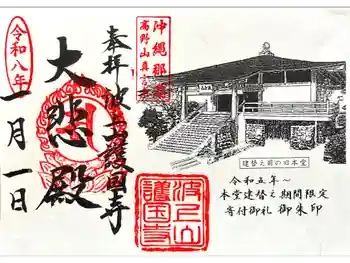 沖縄那覇
高野山真言宗
奉拝 波上護国寺
大悲殿
令和八年
一月一日
波之上
護国寺
建替え前の旧本堂
令和五年～
本堂建替え期間限定
寄付御礼 御朱印